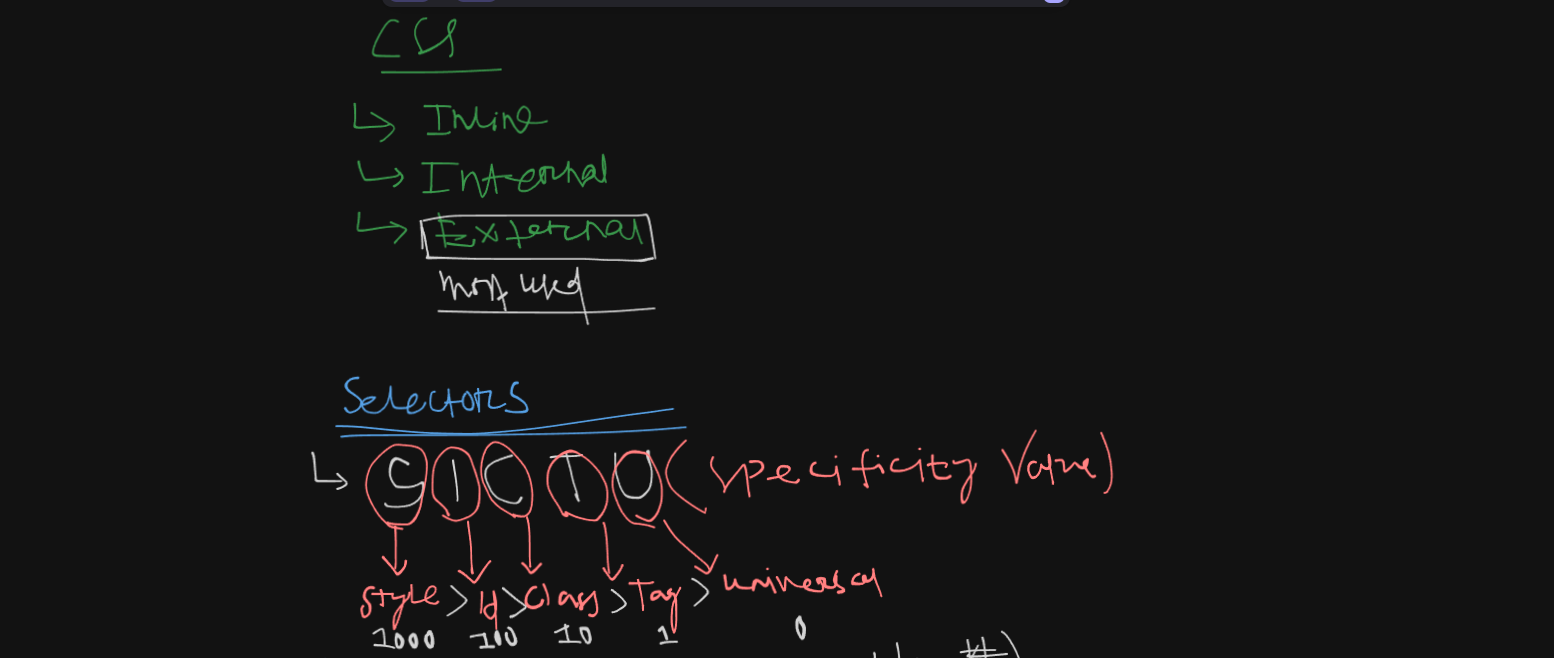 CSS
↳ Inline
↳ Internal
↳ External
most used
Selectors
↳ S I C T U (specificity value)
style > Id > class > Tag > universal
1000 100 10 1 0
#)